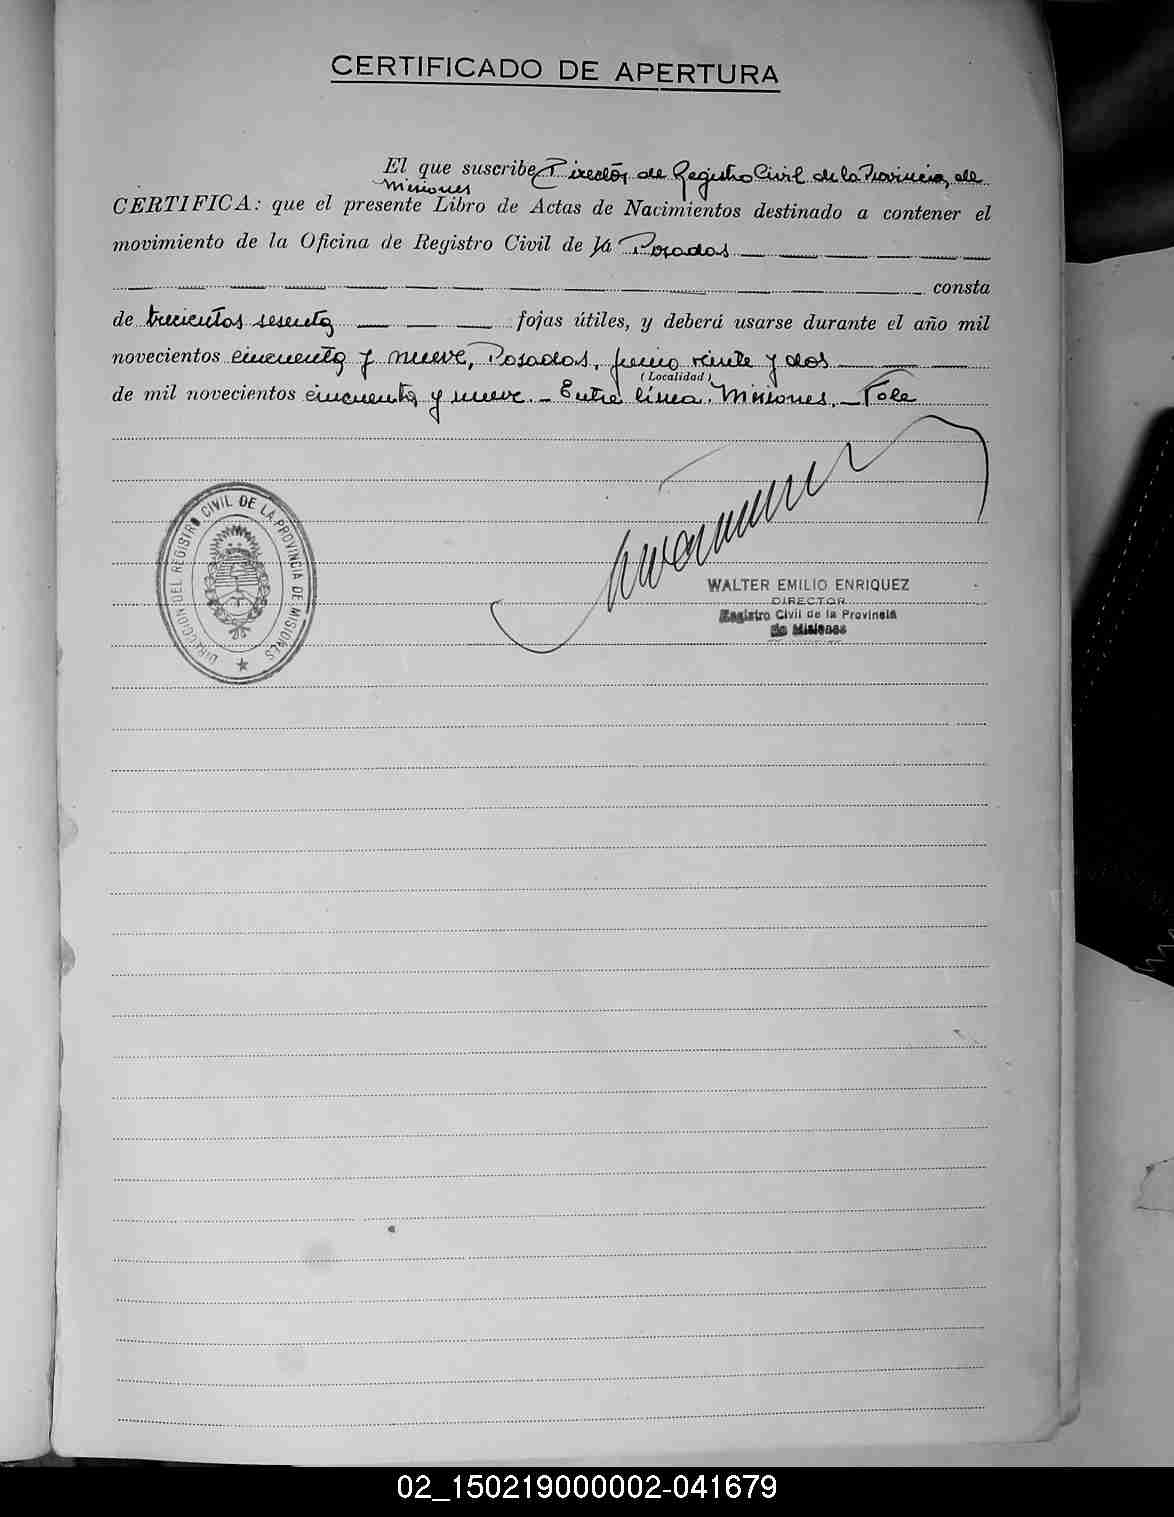 CERTIFICADO DE APERTURA
El que suscribe, Director de Registro Civil de la Provincia, de
Misiones
CERTIFICA: que el presente Libro de Actas de Nacimientos destinado a contener el
movimiento de la Oficina de Registro Civil de la Posadas
consta
de trecientos sesenta fojas útiles, y deberá usarse durante el año mil
novecientos cincuenta y nueve, Posadas, junio veinte y dos
(Localidad)
de mil novecientos cincuenta y nueve. - Entre línea: Misiones. - Vale
DIRECCION DEL REGISTRO CIVIL DE LA PROVINCIA DE MISIONES
WALTER EMILIO ENRIQUEZ
DIRECTOR
Registro Civil de la Provincia
de Misiones
02_150219000002-041679